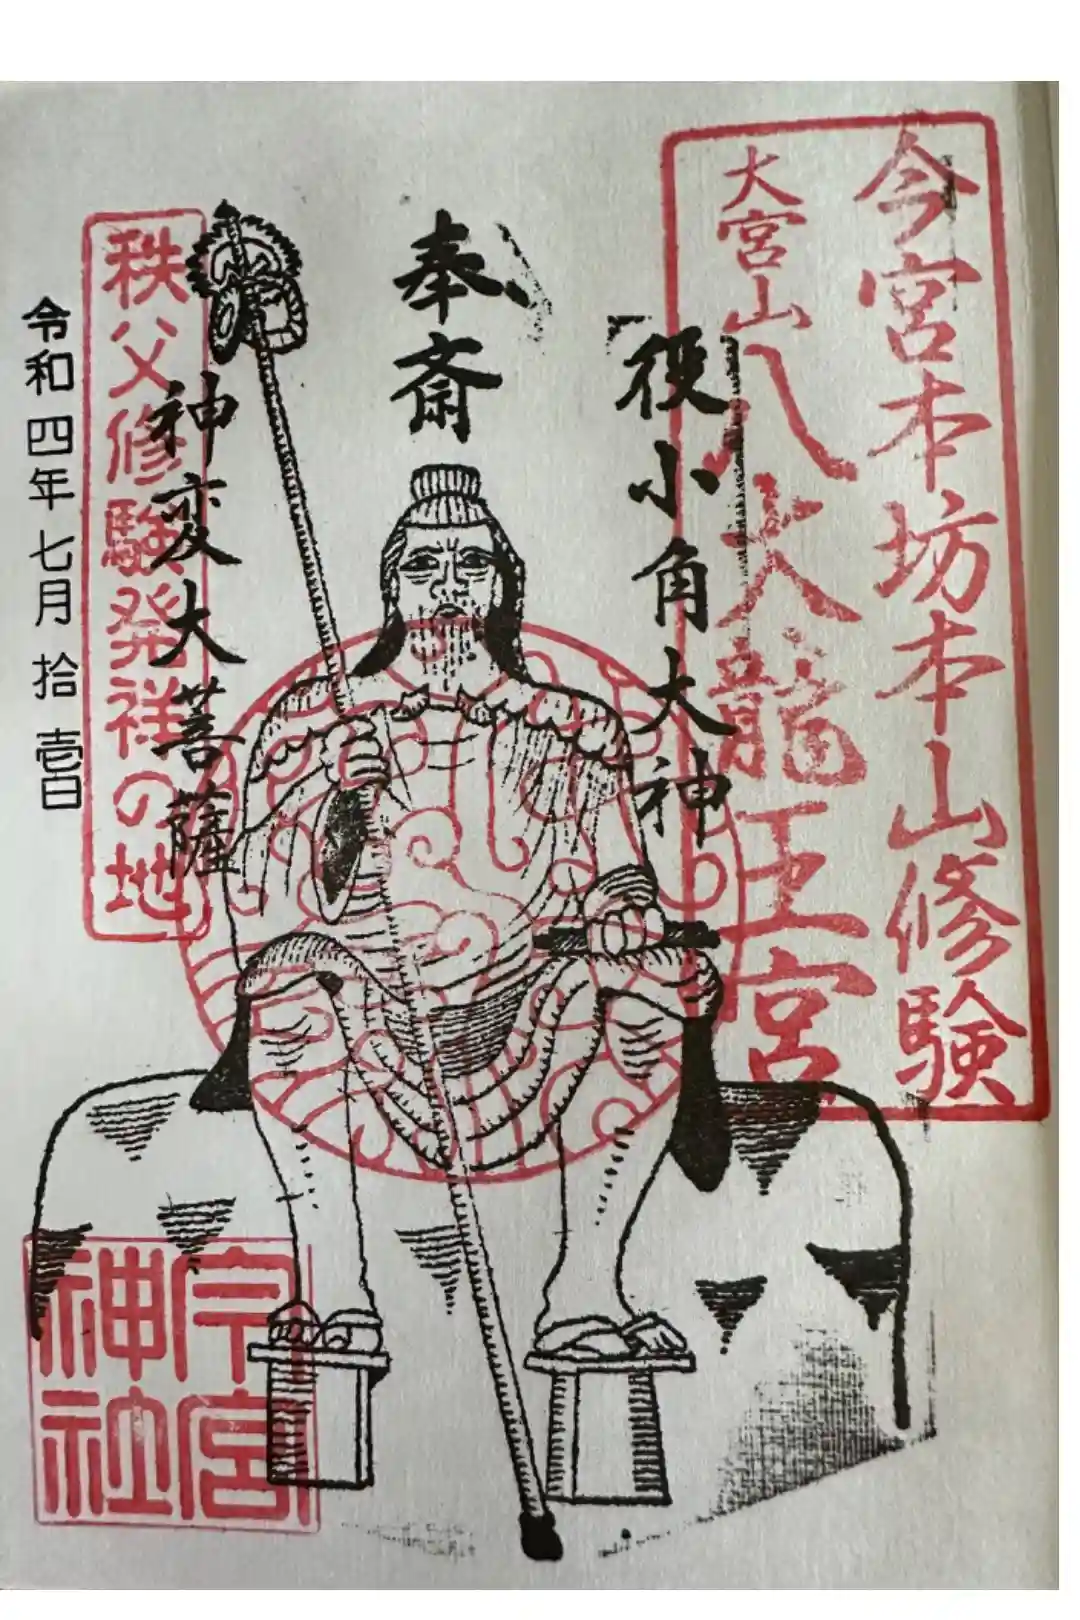 今宮本坊本山修験
大宮山八大龍王宮
役小角大神
奉斎
神変大菩薩
秩父修験発祥の地
令和四年七月拾壱日
今宮
神社